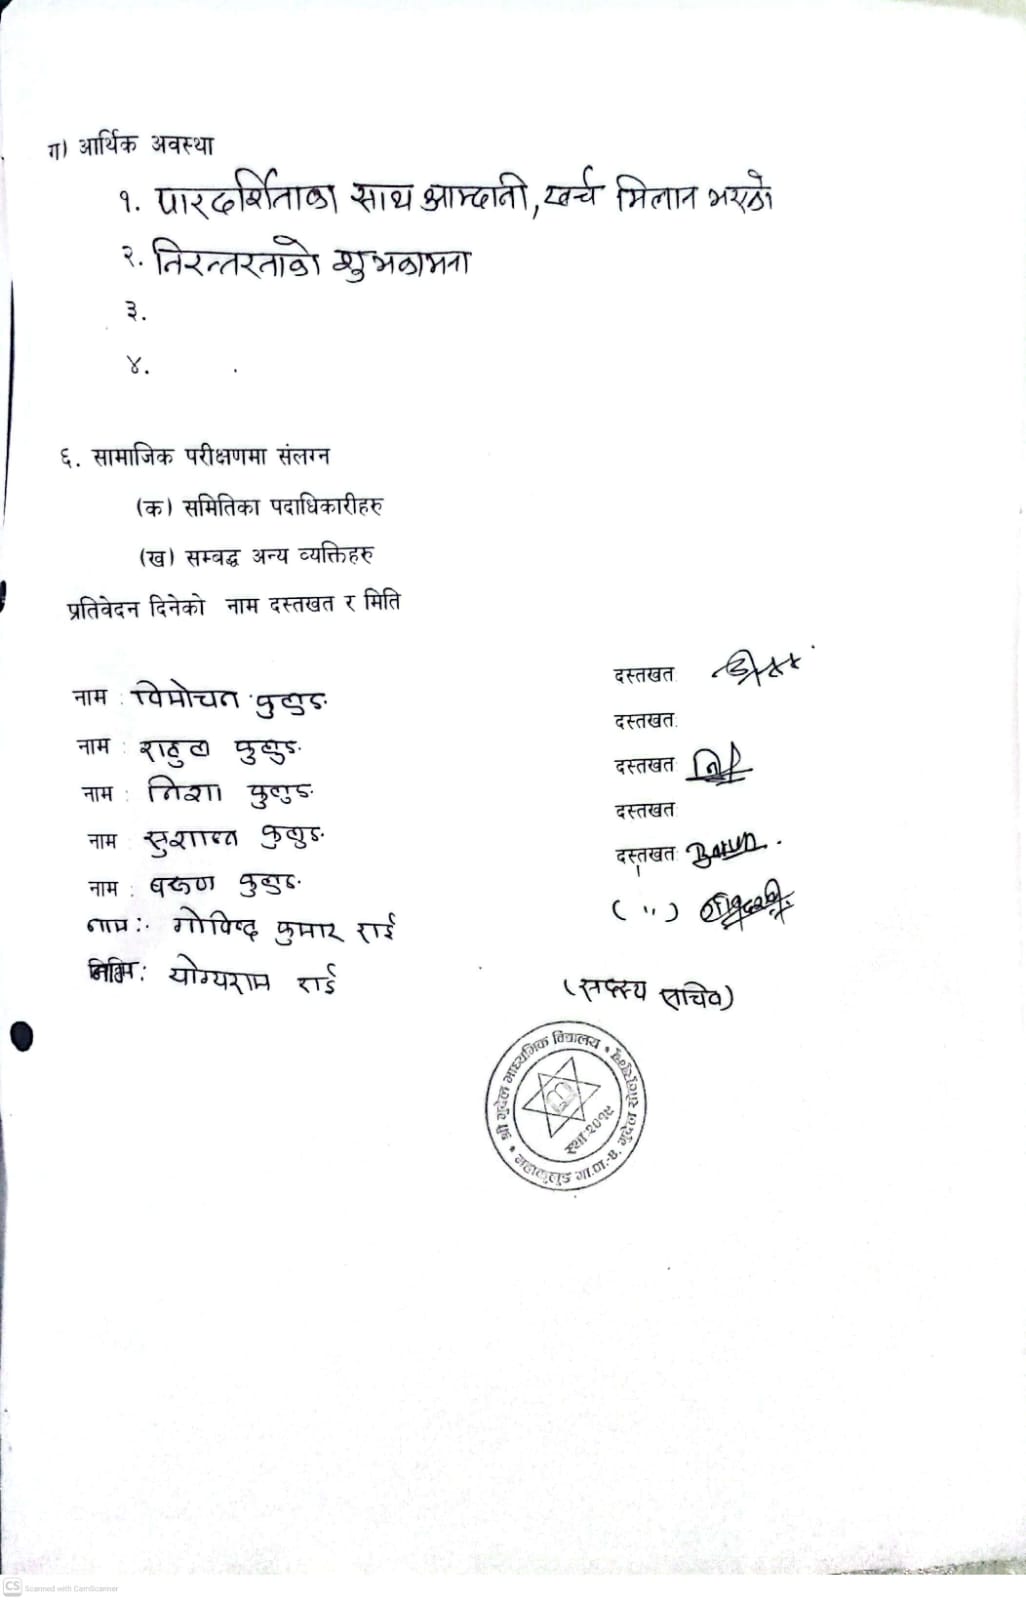 ग) आर्थिक अवस्था
१. पारदर्शिताका साथ आम्दानी, खर्च मिलान भएको
२. निरन्तरताको शुभकामना
३.
४.
६. सामाजिक परीक्षणमा संलग्न
(क) समितिका पदाधिकारीहरु
(ख) सम्बद्ध अन्य व्यक्तिहरु
प्रतिवेदन दिनेको नाम दस्तखत र मिति
नाम : विमोचन कुलुङ दस्तखत:
नाम : राहुल कुलुङ दस्तखत:
नाम : निशा कुलुङ दस्तखत:
नाम : सुशान्त कुलुङ दस्तखत:
नाम : बरुण कुलुङ दस्तखत: Barun
नाम: गोविन्द कुमार राई ( " )
योग्यराम राई (सदस्य सचिव)
श्री गुदेल माध्यमिक विद्यालय
स्था-२०१९
महाकुलुङ गा.पा.-४, गुदेल सोलुखुम्बु
CS Scanned with CamScanner